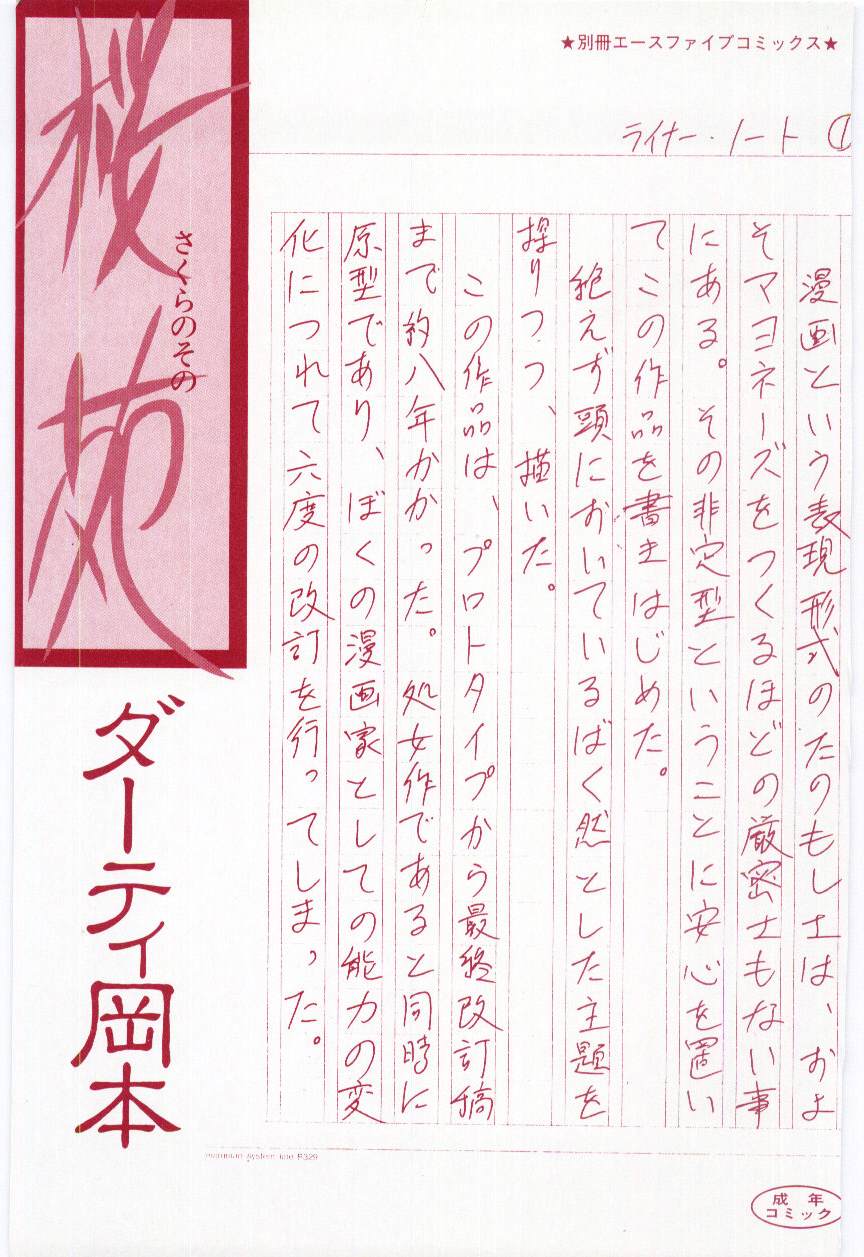 ★別冊エースファイブコミックス★
ライナー・ノート ①
漫画という表現形式のたのもしさは、およ
そマヨネーズをつくるほどの厳密さもない事
にある。その非定型ということに安心を置い
てこの作品を書きはじめた。
絶えず頭においているばく然とした主題を
探りつつ、描いた。
この作品は、プロトタイプから最終改訂稿
まで約八年かかった。処女作であると同時に
原型であり、ぼくの漫画家としての能力の変
化につれて六度の改訂を行ってしまった。
桜苑
さくらのその
ダーティ岡本
system
成年
コミック